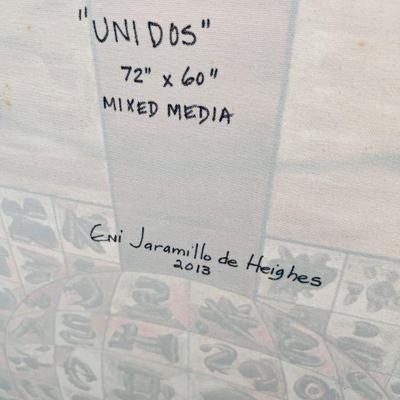 "UNIDOS"
72" x 60"
MIXED MEDIA
Eni Jaramillo de Heighes
2013